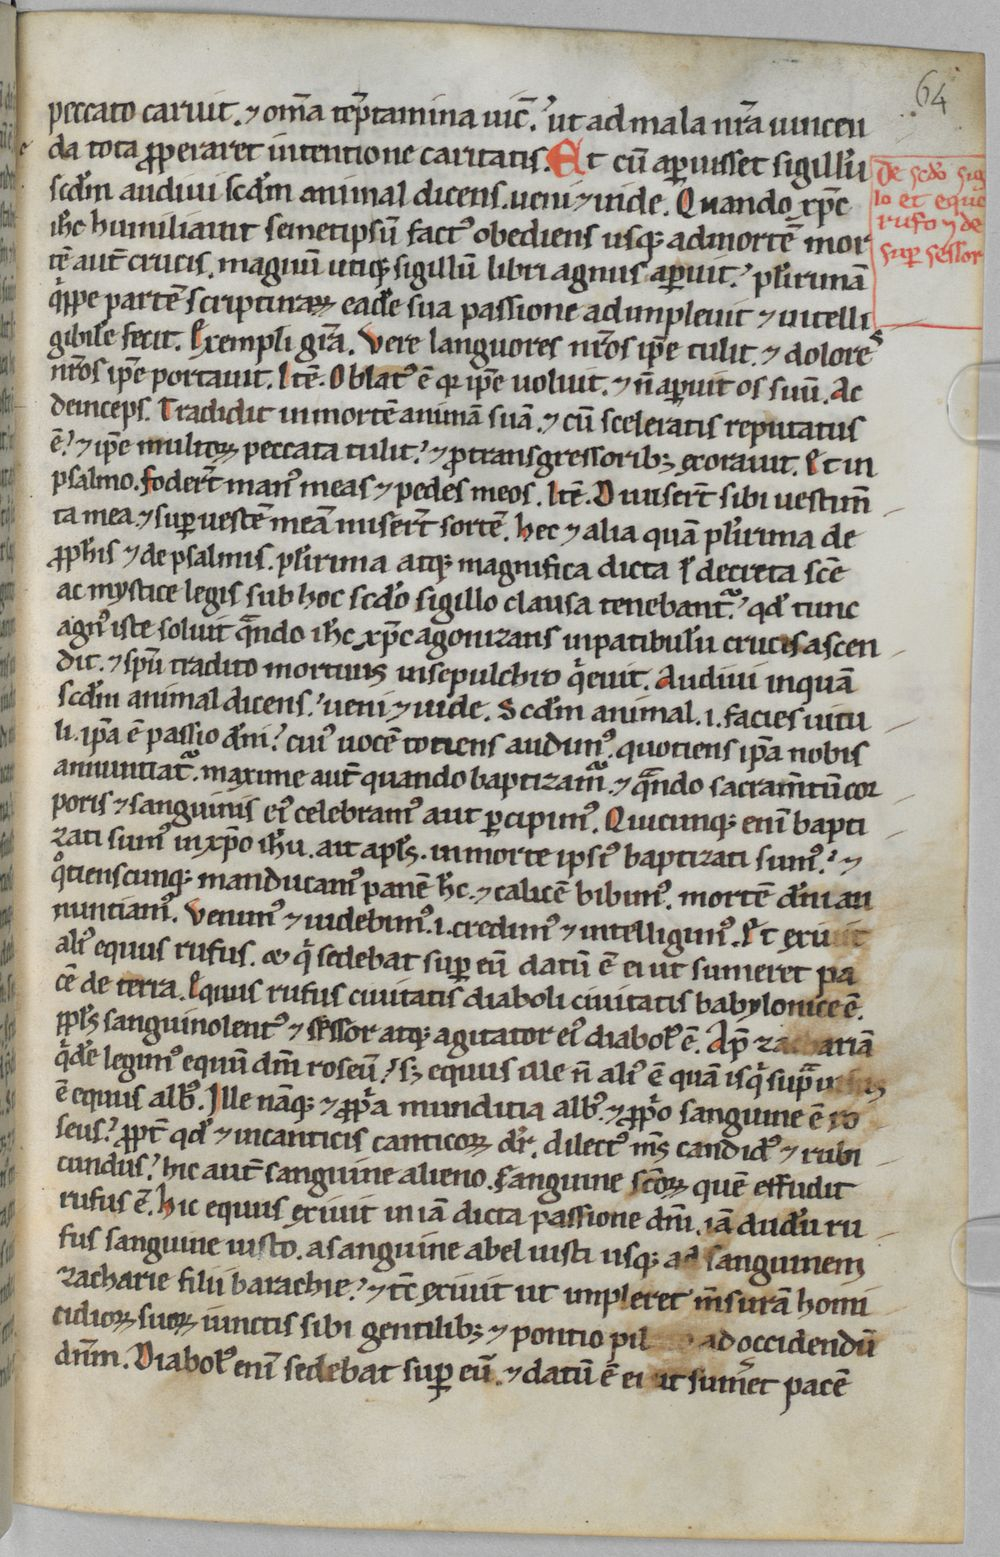 64
peccato caruit. ⁊ om̄a tēptamina uic̄. ut ad mala nr̄a uincen
da tota ꝓperaret intentione caritatis. Et cū aꝑuisset sigillū
scd̄m audiui scd̄m animal dicens. ueni ⁊ uide. Quando xp̄c
ih̄c humiliauit semetipsū fact᷒ obediens usq; ad mortē mor
tē aut̄ crucis. magnū utiq; sigillū libri agnus aꝑuit. pl᷒rimā
q̇ppe partē scripturaꝝ eadē sua passione adimpleuit ⁊ intelli
gibilē fecit. Exempli gr̄a. Vere languores nr̄os ip̄e tulit. ⁊ dolore᷒
nr̄os ip̄e portauit. Itē. Oblat᷒ ē qꝛ ip̄e uoluit. ⁊ n̄ aꝑuit os suū. Ac
deinceps. Tradidit in mortē animā suā. ⁊ cū sceleratis reputatus
ē. ⁊ ip̄e multoꝝ peccata tulit. ⁊ ꝓ transgressorib; exorauit. Et in
psalmo. Foder̄t man᷒ meas ⁊ pedes meos. Itē. Diuiser̄t sibi uestim̄
ta mea. ⁊ suꝑ uestē meā miser̄t sortē. Hec ⁊ alia quā pl᷒rima de
ꝓph̄is ⁊ de psalmis. pl᷒rima atq; magnifica dicta ł decreta sc̄e
ac mystice legis sub hoc scd̄o sigillo clausa tenebant᷑. qd̄ tunc
agn᷒ iste soluit qᷓndo ih̄c xp̄c agonizans in patibulū crucis ascen
dit. ⁊ spū tradito mortuus in sepulchro q̇euit. Audiui inquā
scd̄m animal dicens. ueni ⁊ uide. Scd̄m animal .i. facies uitu
li. ip̄a ē passio dn̄i. cui᷒ uocē totiens audim᷒. quotiens ip̄a nobis
annuntiat᷑. maxime aut̄ quando baptizam᷑. ⁊ qᷓndo sacram̄tū cor
poris ⁊ sanguinis ei᷒ celebram᷒ aut ꝑcipim᷒. Quicunq; enī bapti
zati sum᷒ in xp̄o ih̄u. ait apl̄s. in morte ipsi᷒ baptizati sum᷒. ⁊
q̊tienscunq; manducam᷒ panē h̄c. ⁊ calicē bibim᷒. mortē dn̄i an
nuntiam᷒. Venim᷒ ⁊ uidebim᷒ .i. credim᷒ ⁊ intelligim᷒. Et exiuit
ali᷒ equus rufus. ⁊ q̇ sedebat suꝑ eū datū ē ei ut sumeret pa
cē de terra. Equus rufus ciuitatis diaboli ciuitatis babylonice ē.
ppl̄s sanguinolent᷒ ⁊ sessor atq; agitator ei᷒ diabol᷒ ē. Ap̄ zachariā
q̇dē legim᷒ equū dn̄i roseū. s; equus ille n̄ ali᷒ ē quā is q̇ supᷓ
ē equus alb᷒. Ille nāq; ⁊ ꝓpᷓa munditia alb᷒. ⁊ ꝓp̊o sanguine ē ro
seus. ꝓpt̄ qd̄ ⁊ in canticis canticoꝝ dr̄. dilect᷒ ms̄ candid᷒ ⁊ rubi
cundus. hic aut̄ sanguine alieno. sanguine sc̄oꝝ quē effudit
rufus ē. Hic equus exiuit in iā dicta passione dn̄i. iā dudū ru
fus sanguine iusto. a sanguine abel iusti usq; ad sanguinem
zacharie filii barachie. ⁊ tc̄ exiuit ut impleret m̄surā homi
cidioꝝ suoꝝ iunctis sibi gentilib; ⁊ pontio pil ad occidendū
dn̄m. Diabol᷒ enī sedebat suꝑ eū. ⁊ datū ē ei ut sum̄et pacē
De scd̄o sig
lo et equo
rufo ⁊ de
suꝑ sessor